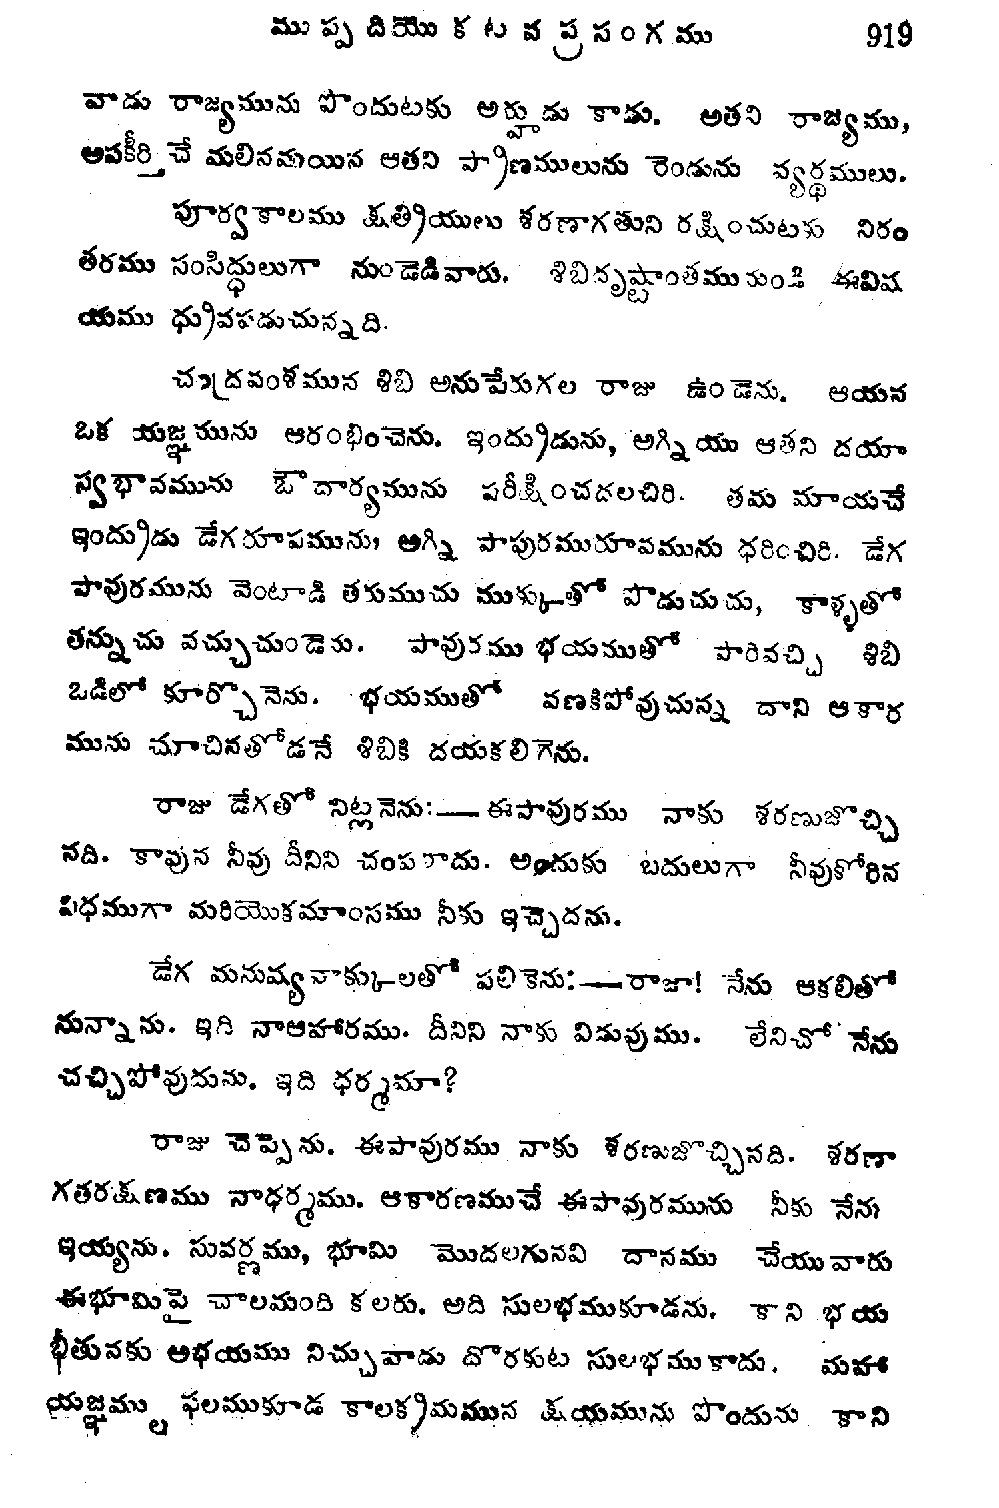 ముప్పదియొకటవ ప్రసంగము 919
వాడు రాజ్యమును పొందుటకు అర్హుడు కాడు. అతని రాజ్యము,
అపకీర్తిచే మలినమయిన ఆతని ప్రాణములును రెండును వ్యర్థములు.
పూర్వకాలము క్షత్రియులు శరణాగతుని రక్షించుటకు నిరం
తరము సంసిద్ధులుగా నుండెడివారు. శిబిదృష్టాంతమునుండి ఈవిష
యము ధ్రువపడుచున్నది.
చంద్రవంశమున శిబి అనుపేరుగల రాజు ఉండెను. ఆయన
ఒక యజ్ఞమును ఆరంభించెను. ఇంద్రుడును, అగ్నియు ఆతని దయా
స్వభావమును ఔదార్యమును పరీక్షించదలచిరి. తమ మాయచే
ఇంద్రుడు డేగరూపమును, అగ్ని పావురమురూపమును ధరించిరి. డేగ
పావురమును వెంటాడి తరుముచు ముక్కుతో పొడుచుచు, కాళ్ళతో
తన్నుచు వచ్చుచుండెను. పావురము భయముతో పారివచ్చి శిబి
ఒడిలో కూర్చొనెను. భయముతో వణకిపోవుచున్న దాని ఆకార
మును చూచినతోడనే శిబికి దయకలిగెను.
రాజు డేగతో నిట్లనెను:—ఈపావురము నాకు శరణుజొచ్చి
నది. కావున నీవు దీనిని చంపరాదు. అందుకు బదులుగా నీవుకోరిన
విధముగా మరియొకమాంసము నీకు ఇచ్చెదను.
డేగ మనుష్యవాక్కులతో పలికెను:—రాజా! నేను ఆకలితో
నున్నాను. ఇది నాఆహారము. దీనిని నాకు విడువుము. లేనిచో నేను
చచ్చిపోవుదును. ఇది ధర్మమా?
రాజు చెప్పెను. ఈపావురము నాకు శరణుజొచ్చినది. శరణా
గతరక్షణము నాధర్మము. ఆకారణముచే ఈపావురమును నీకు నేను
ఇయ్యను. సువర్ణము, భూమి మొదలగునవి దానము చేయువారు
ఈభూమిపై చాలమంది కలరు. అది సులభముకూడను. కాని భయ
భీతునకు అభయము నిచ్చువాడు దొరకుట సులభముకాదు. మహా
యజ్ఞముల ఫలముకూడ కాలక్రమమున క్షయమును పొందును కాని